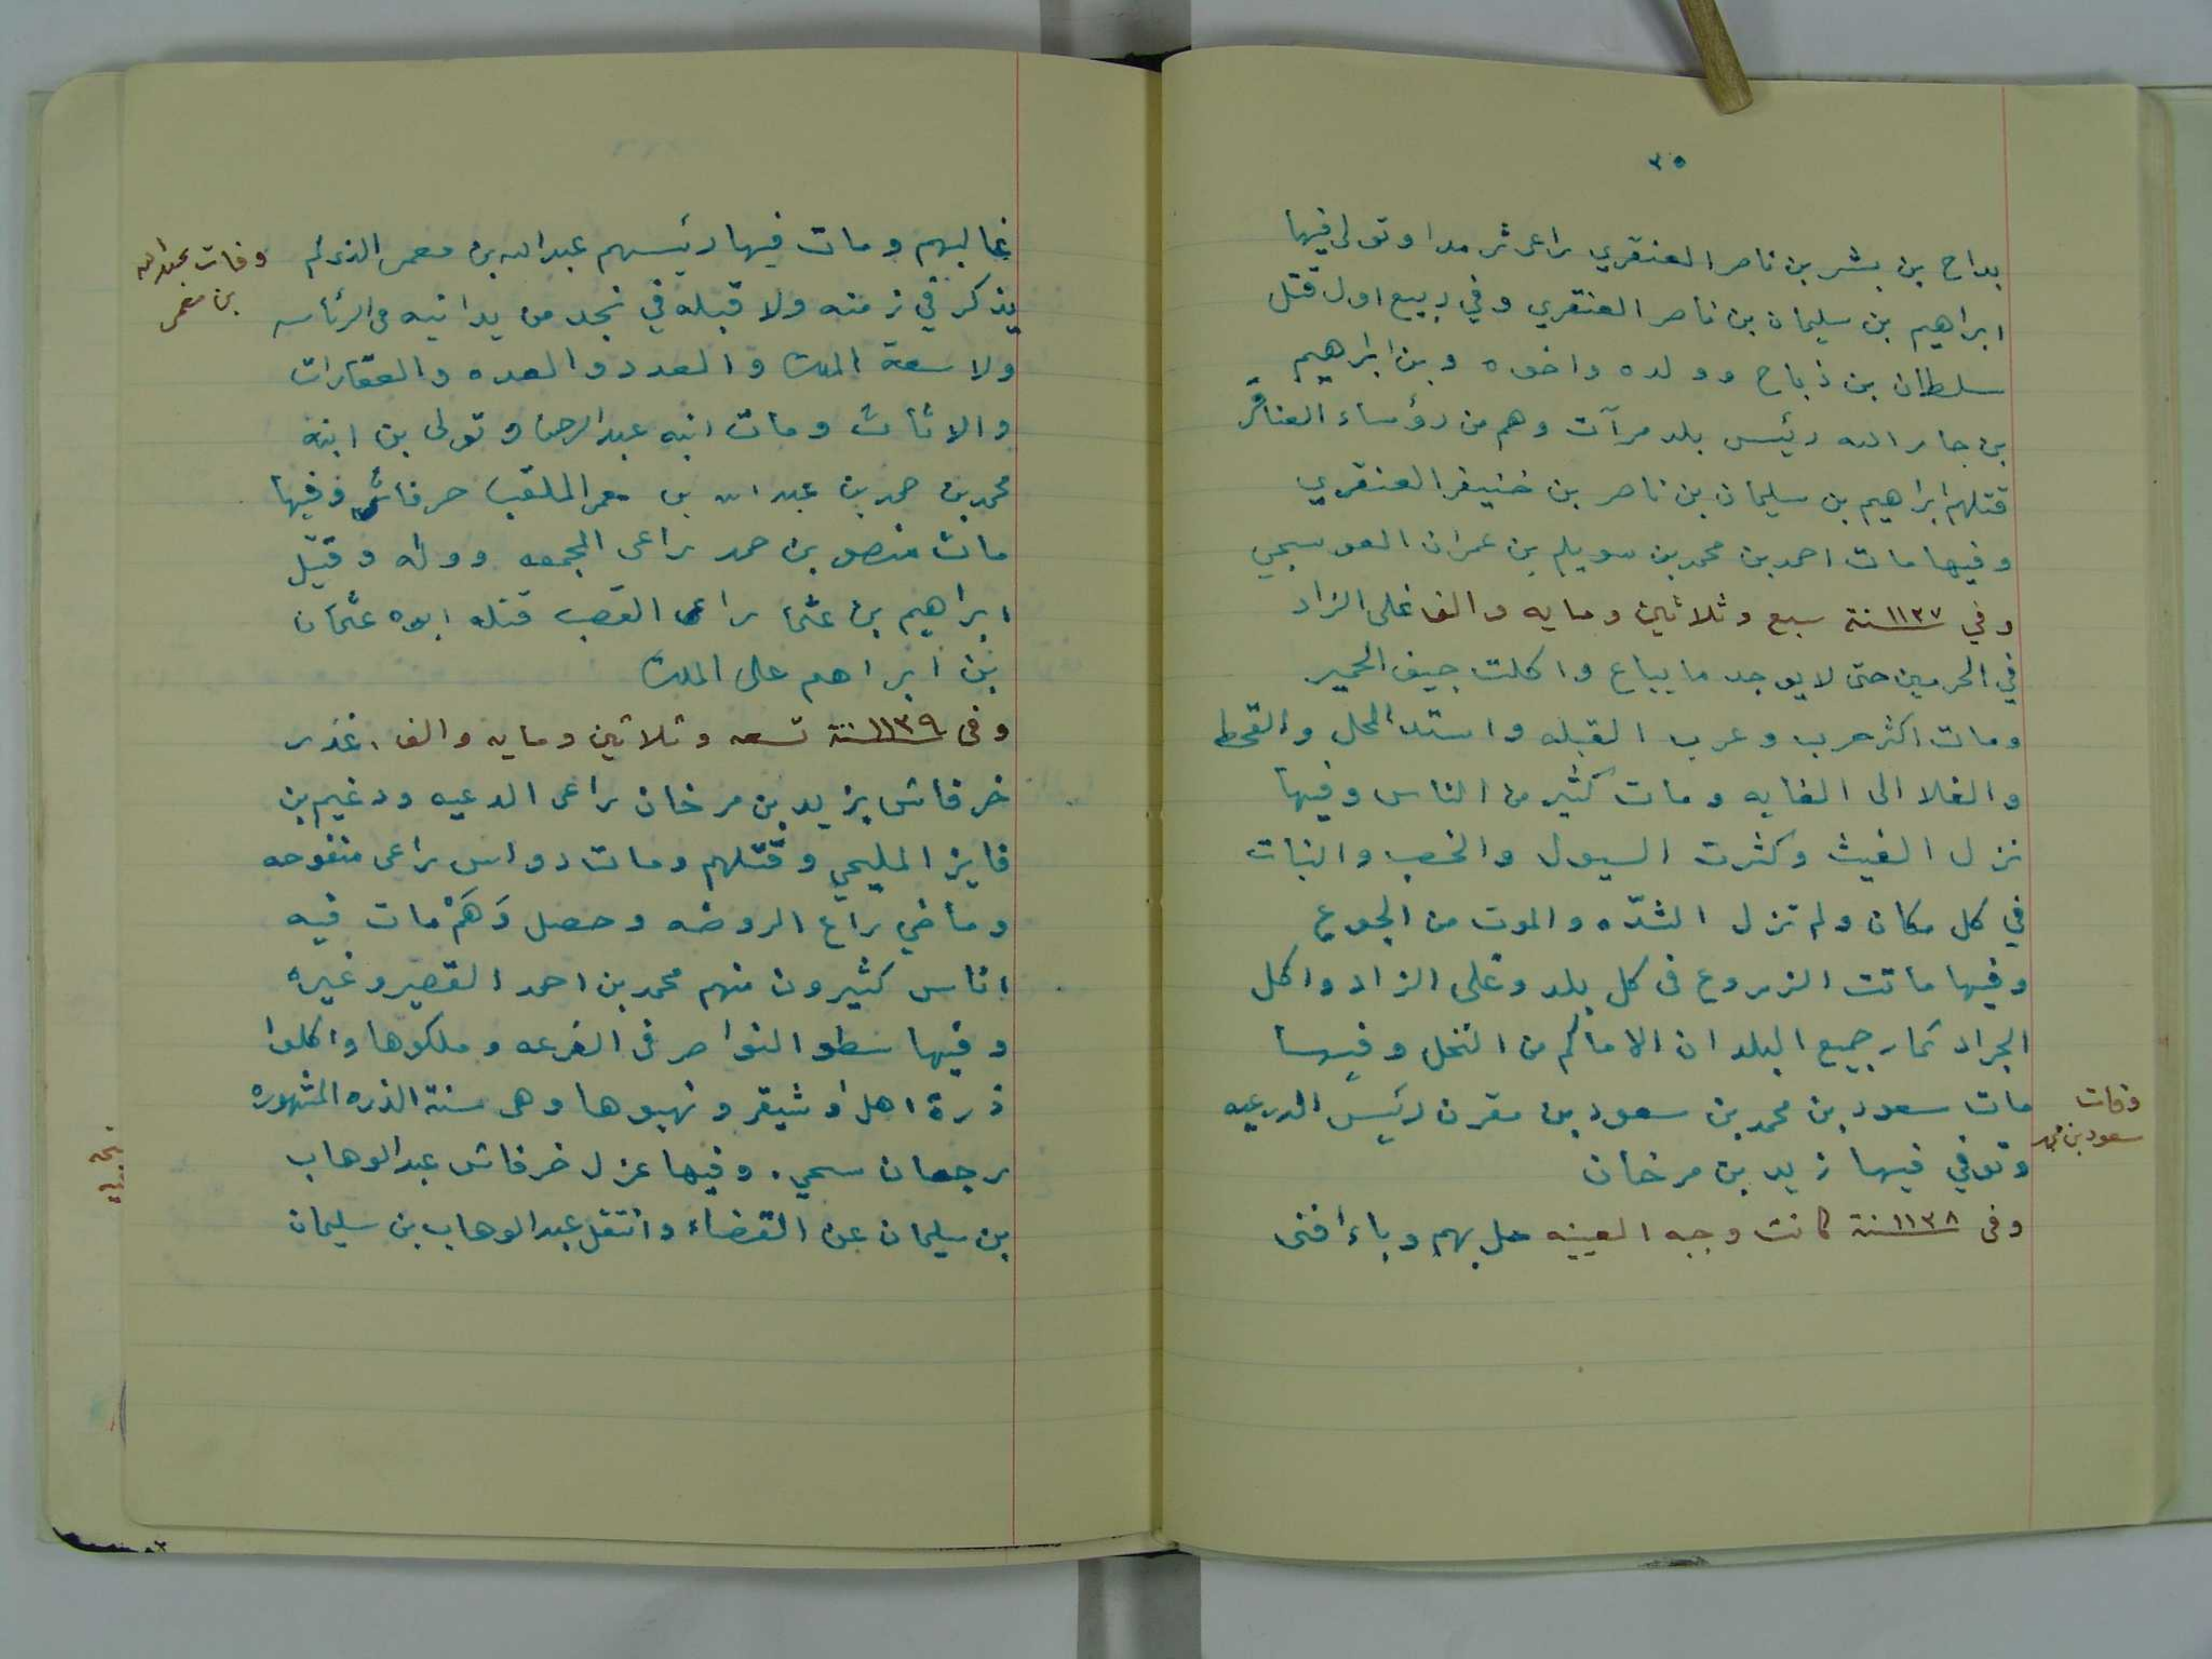 ٣٥
بداح بن بشر بن ناصر العنقري راعى ثرمدا وتولى فيها
ابراهيم بن سليمان بن ناصر العنقري وفي ربيع اول قتل
سلطان بن ذباح وولده واخوه وبن ابراهيم
بن جار الله رئيس بلد مرآت وهم من رؤساء العناقر
قتلهم ابراهيم بن سليمان بن ناصر بن خنيفر العنقري
وفيها مات احمد بن محمد بن سويلم بن عمران العوسجي
وفي ١١٣٧ سنة سبع وثلاثين ومايه والف غلى الزاد
في الحرمين حتى لا يوجد ما يباع واكلت جيف الحمير
ومات اكثر حرب وعرب القبله واشتد المحل والقحط
والغلا الى الغايه ومات كثير من الناس وفيها
نزل الغيث وكثرت السيول والخصب والنبات
في كل مكان ولم تزل الشدّه والموت من الجوع
وفيها ماتت الزروع فى كل بلد وغلى الزاد واكل
الجراد ثمار جميع البلدان الا ماكم من النخل وفيها
مات سعود بن محمد بن سعود بن مقرن رئيس الدرعيه
وتوفي فيها زيد بن مرخان
وفى ١١٣٨ سنة كانت وجبه العيينه حل بهم وباء افنى
وفات
سعود بن محمد
غالبهم ومات فيها رئيسهم عبدالله بن معمر الذى لم
يذكر في زمنه ولا قبله في نجد من يدانيه فى الرئاسه
ولا سعة الملك والعدد والعده والعقارات
والاثاث ومات ابنه عبدالرحمن وتولى بن ابنه
محمد بن حمد بن عبد الله بن معمر الملقب خرفاش وفيها
مات منصور بن حمد راعى المجمعه وولده وقتل
ابراهيم بن عثمان راعى القصب قتله ابوه عثمان
بن ابراهيم على الملك
وفى ١١٣٩ سنة تسعه وثلاثين ومايه والف. غدر
خرفاش بزيد بن مرخان راعى الدرعيه ودغيم بن
فايز المليحي وقتلهم ومات دواس راعى منفوحه
وماضي راع الروضه وحصل وَهَمْ مات فيه
اناس كثيرون منهم محمد بن احمد القصير وغيره
وفيها سطو النواصر فى الفرعه وملكوها واكلوا
ذرة اهل اوشيقر ونهبوها وهى سنة الذره المشهوره
برجعان سحي. وفيها عزل خرفاش عبدالوهاب
بن سليمان عن القضاء وانتقل عبدالوهاب بن سليمان
وفات عبدالله
بن معمر